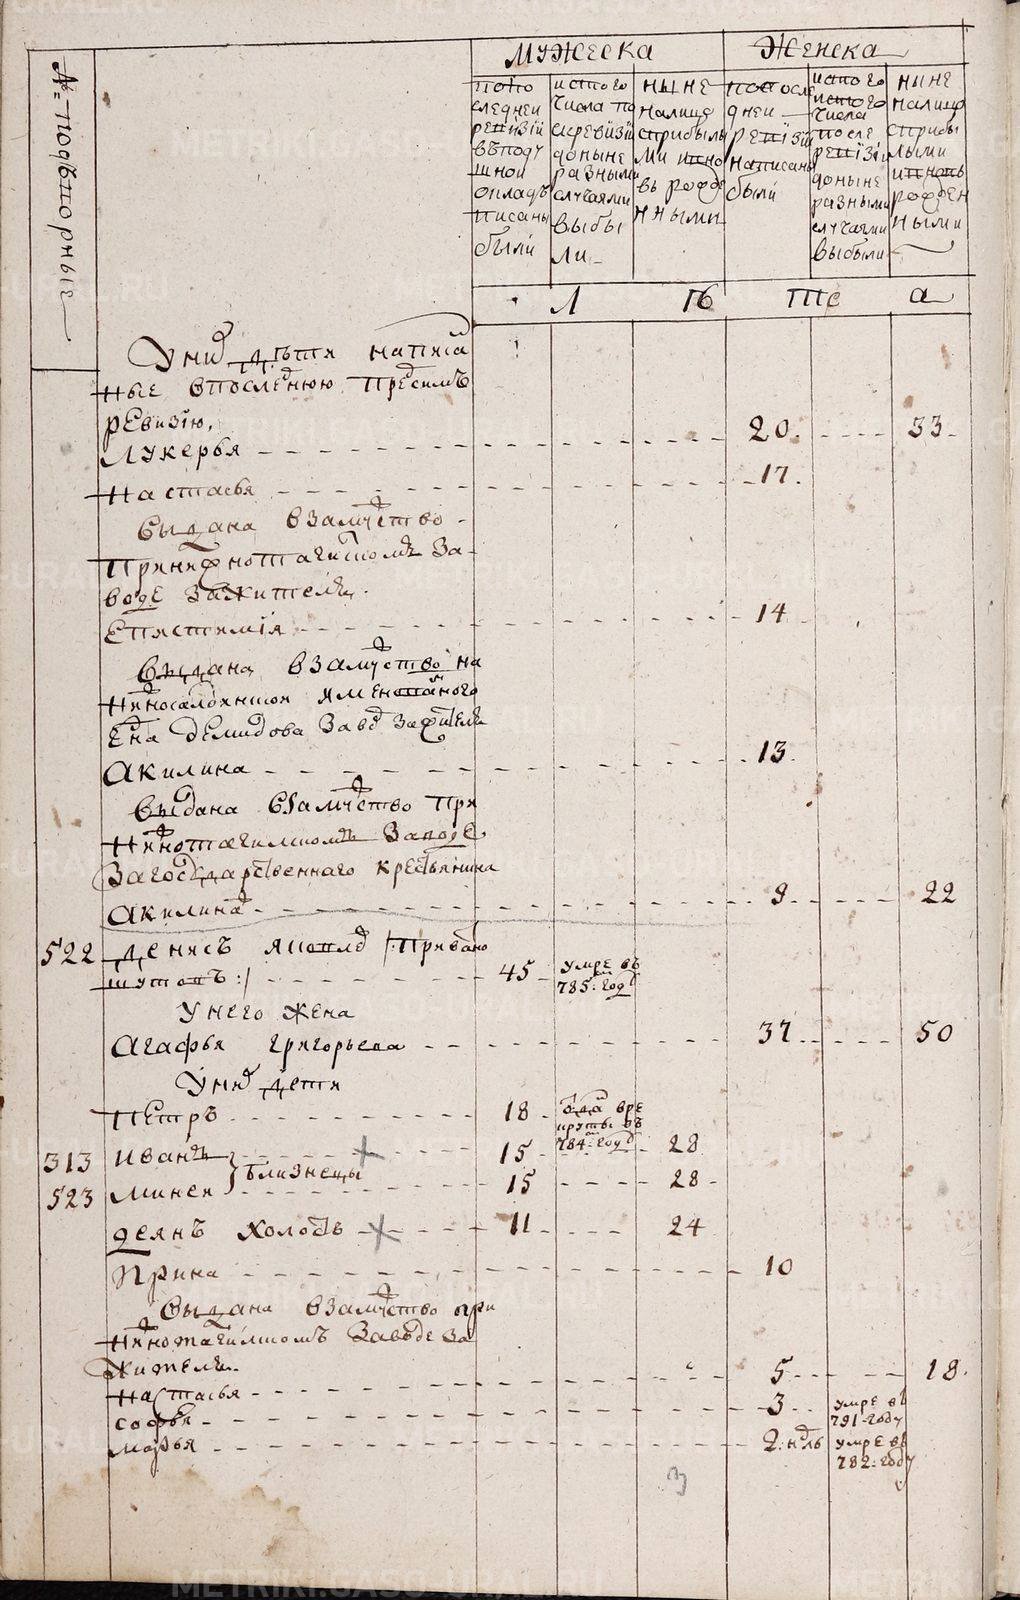 № подворные
мужеска
женска
попо
следней
ревизïй
вподу
шной
окладъ
писаны
были
истого
числа по
слревизïи
доныне
разными
случаями
выбы
ли
ныне
налице
сприбылы
ми
вь рожде
нными
попосле
дней
ревïзïи
написаны
были
истого
числа
после
ревïзïи
доныне
разными
случаями
выбыли
ныне
налице
сприбы
лыми
рожден
ными
Л
Б
Т
а
Уних дѣти написа
ные впоследнюю предсимъ
ревизïю,
Лукерья 20. 33
Настасья 17.
выдана взамужество
принижнотагилскомъ за
воде зажителя
Епистимïя 14
выдана взамужество на
ина демидова завод зажителя
Акилина 13
выдана взамужество при
нижнотагилскомъ заводе
загосударственнаго крестьянина
Акилина 9 22
522 Денисъ яковлев /: прывало
шутовъ :/ 45 умре въ
785: году
Унего жена
Агафья григорьева 37 50
Уних дети
Петръ 18 отдан вре
круты въ
784: году
313 Иванъ 15 28
близнецы
523 Миней 15 28
Деянъ холостъ 11 24
Ирина 10
выдана взамужество при
нижнотагилскомъ заводе за
жителя
Настасья 5 18
софья 3 умре въ
791: году
марья 2: нѣдль умре въ
782: году